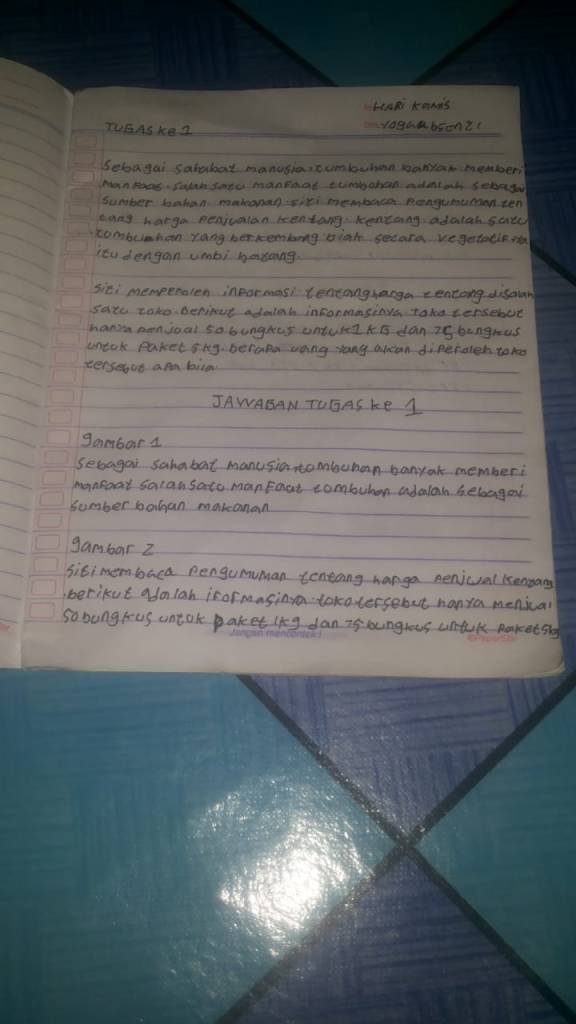 HARI Kamis
TUGAS ke 1
Yoga absen 21
Sebagai sahabat manusia tumbuhan banyak memberi
manfaat. salah satu manfaat tumbuhan adalah sebagai
sumber bahan makanan. siti membaca Pengumuman ten
tang harga Penjualan Kentang. Kentang adalah satu
tumbuhan yang berkembang biak secara vegetatif
itu dengan umbi batang.
Siti memperoleh informasi tentang harga tentang disalah
satu toko. berikut adalah informasinya toko tersebut
hanya menjual 50 bungkus untuk 1 KG dan 75 bungkus
untuk Paket 5 kg. berapa uang yang akan diPeroleh toko
tersebut apa bila
JAWABAN TUGAS ke 1
gambar 1
Sebagai sahabat manusia tumbuhan banyak memberi
manfaat salah satu manfaat tumbuhan adalah sebagai
sumber bahan makanan
gambar 2
siti membaca Pengumuman tentang harga Penjual Kentang
berikut adalah informasinya toko tersebut hanya menjual
50 bungkus untuk Paket 1kg dan 75 bungkus untuk Paket 5kg
Jangan mencontek!